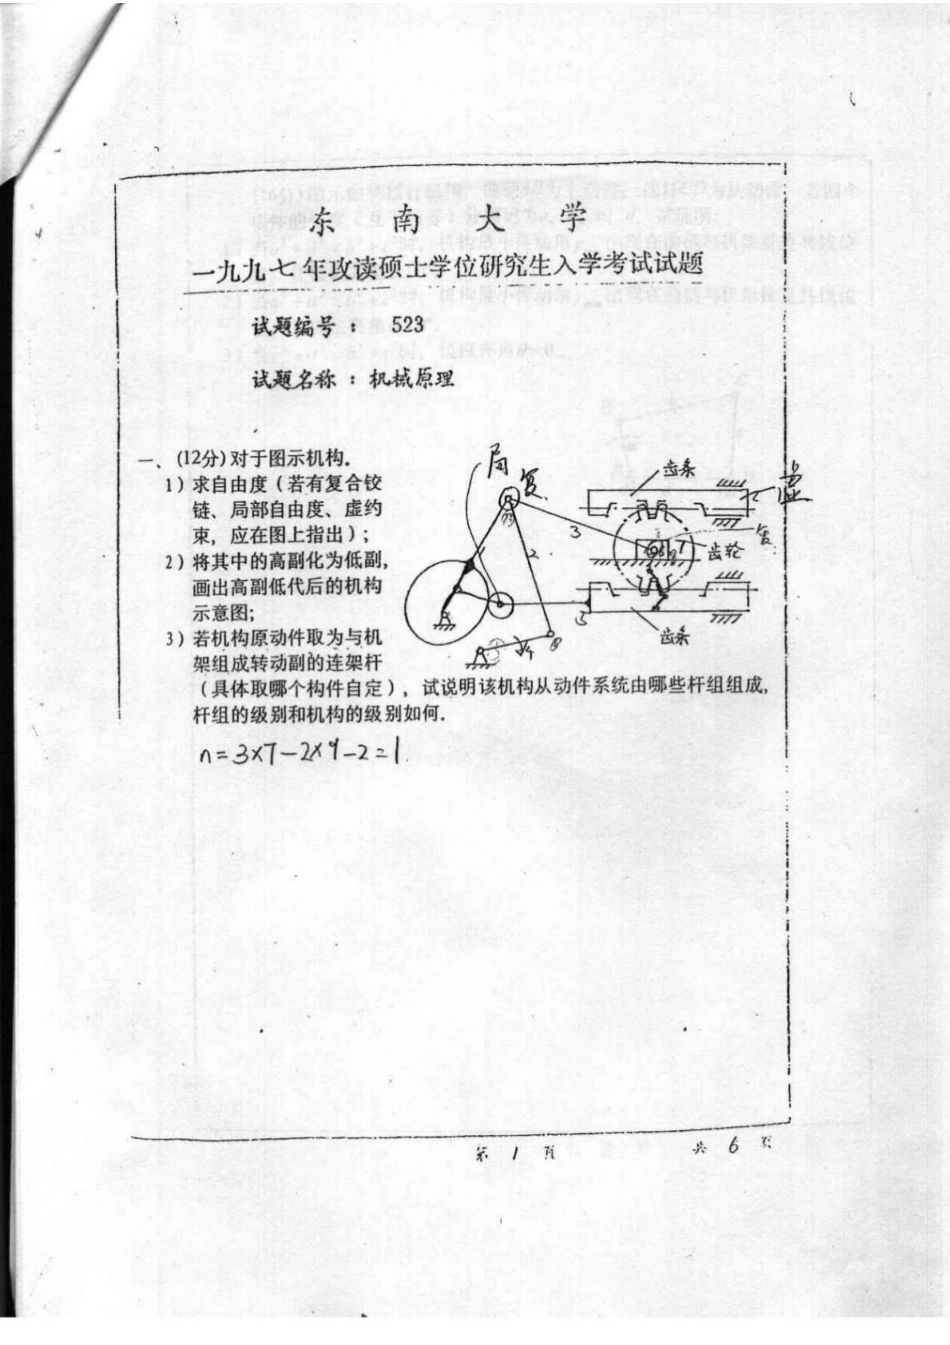 东 南 大 学
一九九七年攻读硕士学位研究生入学考试试题
试题编号： 523
试题名称：机械原理
一、(12分)对于图示机构.
1)求自由度（若有复合铰
链、局部自由度、虚约
束，应在图上指出）；
2)将其中的高副化为低副,
画出高副低代后的机构
示意图;
3)若机构原动件取为与机
架组成转动副的连架杆
（具体取哪个构件自定），试说明该机构从动件系统由哪些杆组组成,
杆组的级别和机构的级别如何.
局
复
齿条
虚
3
2
7
齿轮
5
4
齿条
n=3×7-2×9-2=1.
第 1 页 共 6 页